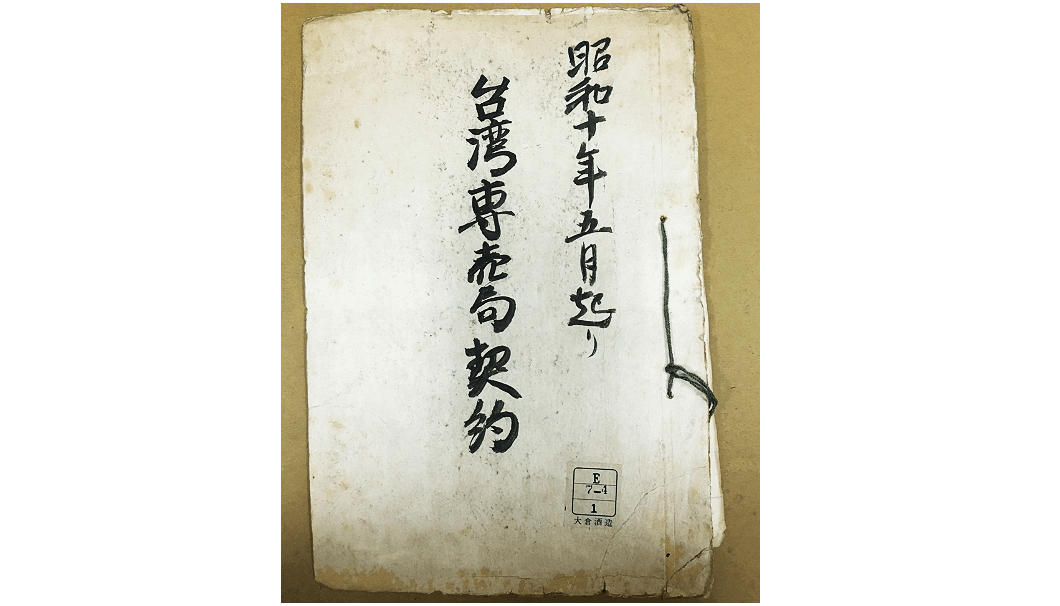 昭和十年五月起り
台湾専売局契約
E
7-4
1
大倉酒造